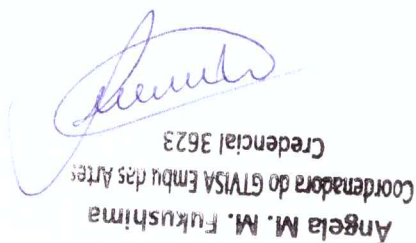 Angela M. M. Fukushima
Coordenadora do GTVISA Embu das Artes
Credencial 3623